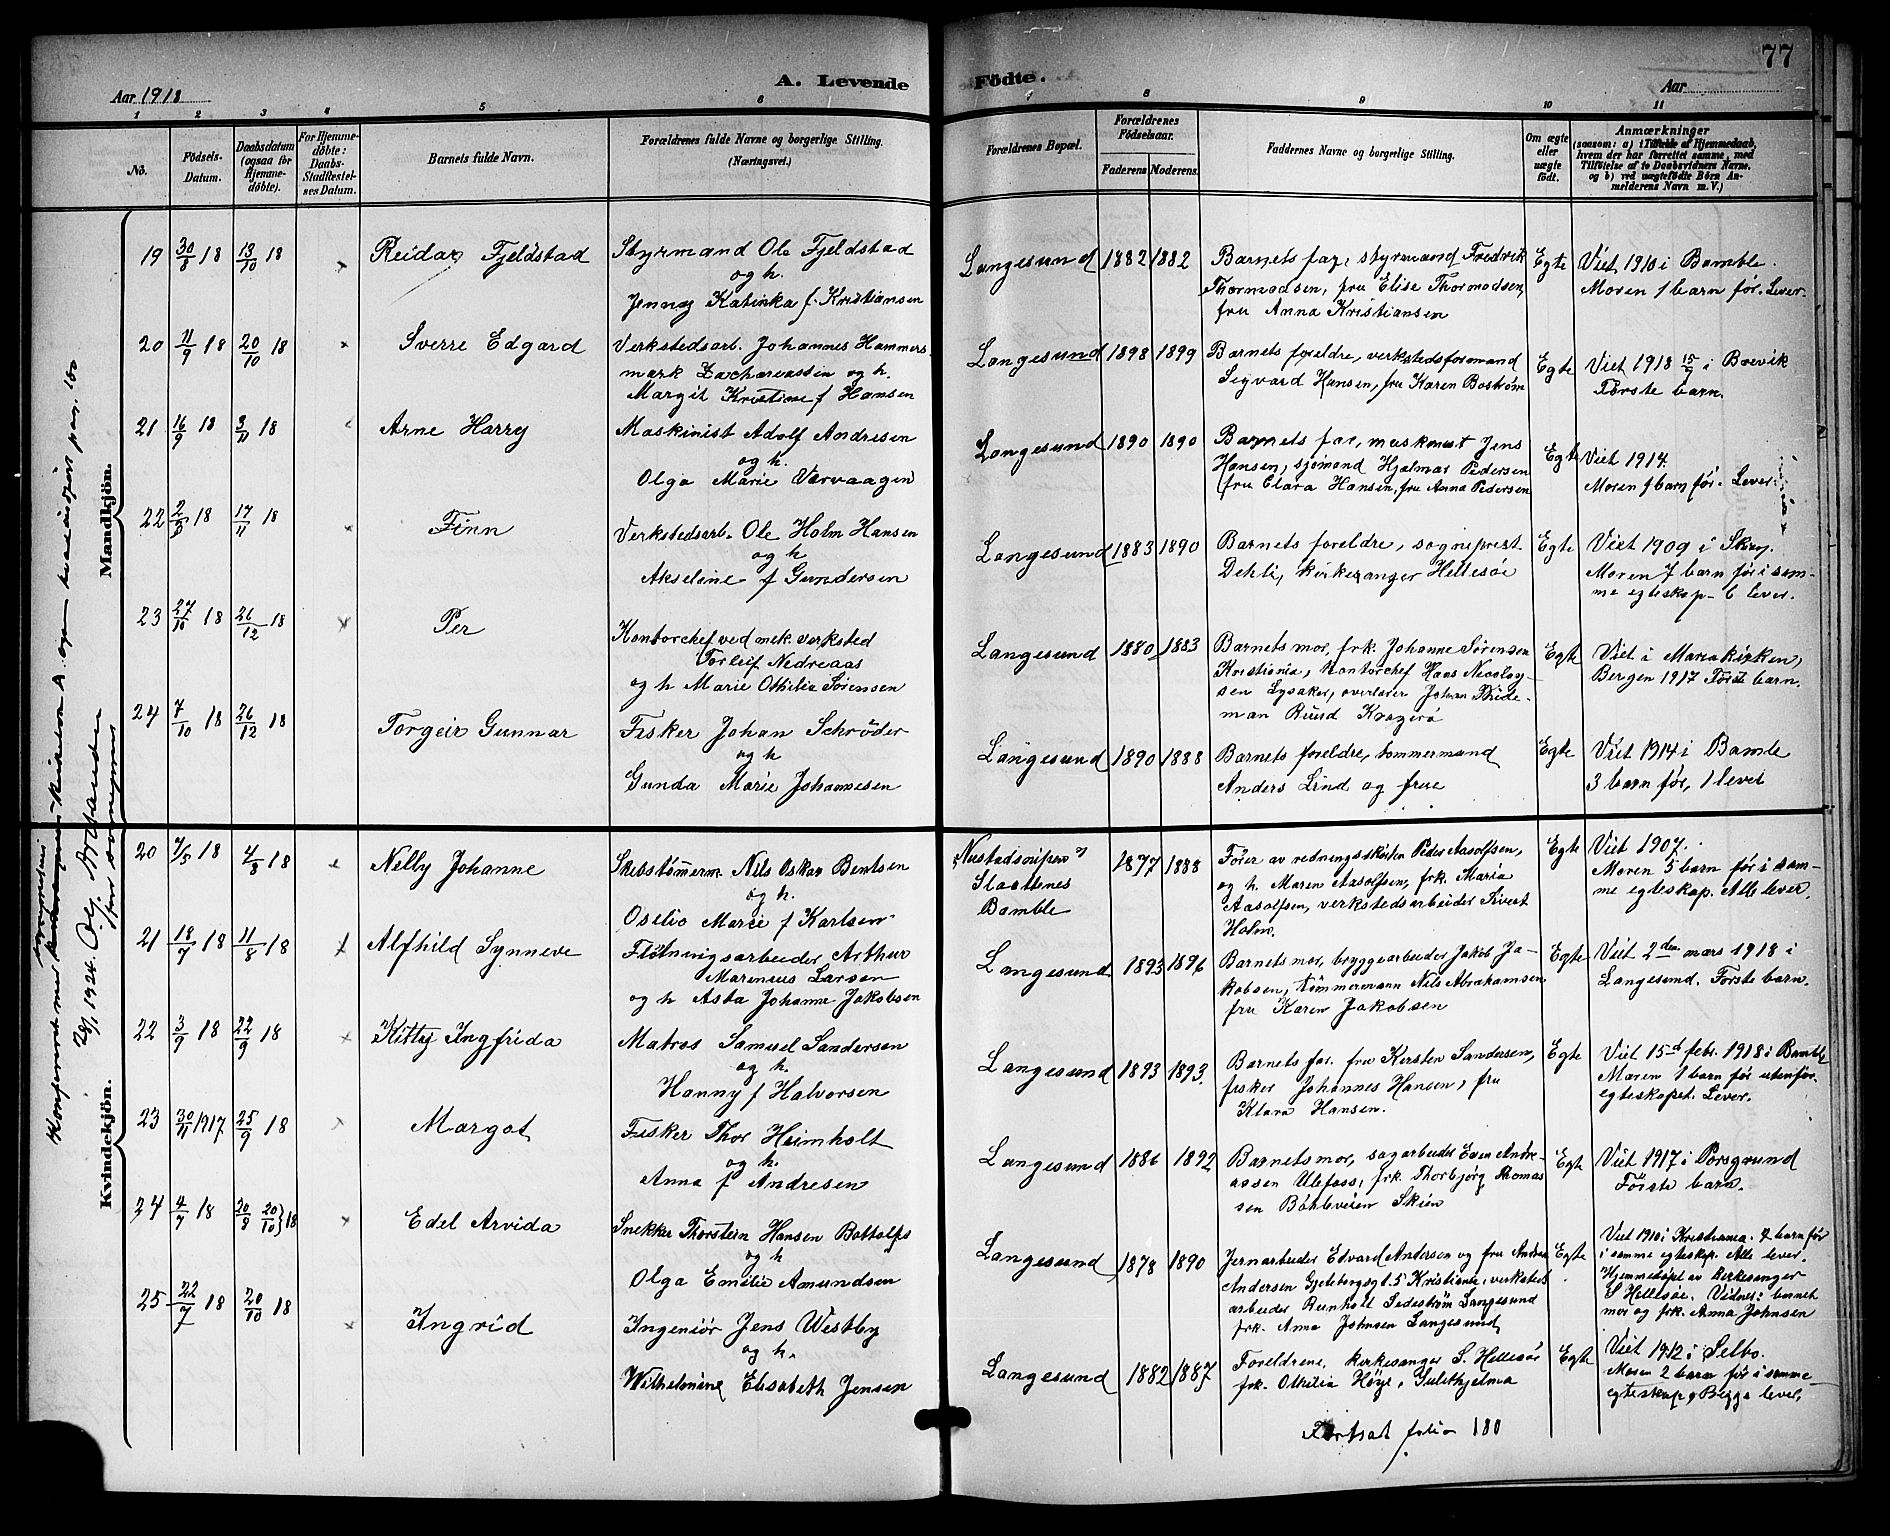 77
A. Levende Födte.
Aar 1918
Aar
1 2 3 4 5 6 7 8 9 10 11
No.
Födsels-Datum.
Daabsdatum (ogsaa for Hjemmedöbte).
For Hjemmedöbte: Daabs-Stadfæstelses Datum.
Barnets fulde Navn.
Forældrenes fulde Navne og borgerlige Stilling. (Næringsvei.)
Forældrenes Bopæl.
Forældrenes Födselsaar.
Faderens Moderens.
Faddernes Navne og borgerlige Stilling.
Om ægte eller uægte födt.
Anmærkninger
(saasom: a) i Tilfælde af Hjemmedaab, hvem der har forrettet samme, med Tilföielse af to Daabsvidners Navne, og b) ved uægtefödte Börn Anmelderens Navn m. V.)
Mandkjön.
19 30/8 18 13/10 18 Reidar Fjeldstad
Styrmand Ole Fjeldstad
og h.
Jenny Katinka f. Kristiansen
Langesund 1882 1882
Barnets far, styrmand Fredrik
Thormodsen, fru Elise Thormodsen,
fru Anna Kristiansen
Egte
Viet 1910 i Bamble.
Moren 1 barn før. Lever.
20 11/9 18 20/10 18 Sverre Edgard
Verkstedsarb. Johannes Hammers-
mark Zachariassen og h.
Margit Kristine f Hansen
Langesund 1898 1899
Barnets foreldre, verkstedsformand
Sigvard Hansen, fru Karen Bostrøm
Egte
Viet 1918 15/7 i Brevik
Første barn.
21 16/9 18 3/11 18 Arne Harry
Maskinist Adolf Andresen
og h.
Olga Marie Vervaagen
Langesund 1890 1890
Barnets far, maskinist Jens
Hansen, sjømand Hjalmar Pedersen
fru Clara Hansen, fru Anna Pedersen
Egte
Viet 1914.
Moren 1 barn før. Lever.
22 2/9 18 17/11 18 Finn
Verkstedsarb. Ole Holm Hansen
og h
Akseline f Gundersen
Langesund 1883 1890
Barnets foreldre, sogneprest
Dehli, kirkesanger Hellesøe
Egte
Viet 1909 i Skien.
Moren 7 barn før i sam-
me egteskap. 6 lever.
23 27/10 18 26/12 18 Per
Kontorchef ved mek. verksted
Torleif Nedreaas
og h Marie Othilie Sørensen
Langesund 1880 1883
Barnets mor, frk. Johanne Sørensen
Kristiania, kontorchef Hans Nicolay-
sen Lysaker, overlærer Johan Thide-
man Ruud Kragerø
Egte
Viet i Mariakirken,
Bergen 1917 Første barn.
24 7/10 18 26/12 18 Torgeir Gunnar
Fisker Johan Schrøder
og h
Gunda Marie Johannesen
Langesund 1890 1888
Barnets foreldre, tømmermand
Anders Lind og frue
Egte
Viet 1914 i Bamle
3 barn før, 1 lever
Kvindekjön.
20 7/5 18 4/8 18 Nelly Johanne
Skibstømmerm Nils Oskar Bentsen
og h.
Oselie Marie f Karlsen
Slaattenes
Bamble
1877 1888
Fører av redningsskøiten Peder Aasolfsen,
og h. Maren Aasolfsen, frk. Maria
Aasolfsen, verkstedsarbeider Sivert
Holm.
Egte
Viet 1907.
Moren 5 barn før i sam-
me egteskap. Alle lever.
21 18/7 18 11/8 18 Alfhild Synneve
Fløtningsarbeider Arthur
Marenius Larsen
og h Asta Johanne Jakobsen
Langesund 1893 1896
Barnets mor, bryggearbeider Jakob Ja-
kobsen, tømmermann Nils Abrahamsen
fru Karen Jakobsen
Egte
Viet 2den mars 1918 i
Langesund. Første barn.
22 3/9 18 22/9 18 Kitty Ingfrida
Matros Samuel Sandersen
og h.
Hanny f Halvorsen
Langesund 1893 1893.
Barnets far. fru Kirsten Sandersen,
fisker Johannes Hansen, fru
Klara Hansen.
Egte
Viet 15d febr. 1918 i Bamble
Moren 1 barn før utenfor
egteskapet. Lever.
23 30/11 1917 25/9 18 Margot
Fisker Thor Heimholt
og h.
Anna f Andresen
Langesund 1886 1892
Barnets mor, sagarbeider Even Andre-
assen Ulefoss, frk. Thorbjørg Thomas
sen Bøhleveien Skien
Egte
Viet 1917 i Porsgrund
Første barn.
24 4/7 18 20/9 20/10 } 18 Edel Arvida
Snekker Thorstein Hansen Bottolfs
og h
Olga Emilie Amundsen
Langesund 1878 1890
Jernarbeider Edvard Andersen og fru Andrea
Andersen Gjetebergsgt. 5 Kristiania, verksteds
arbeider Runholt Sedestrøm Langesund
frk. Anna Johnsen Langesund
Egte
Viet 1910 i Kristiania. 7 barn før
i samme egteskap. Alle lever.
Hjemmedøpt av kirkesanger
S Hellesøe. Vidner: barnet
mor og frk. Anna Johnsen
25 22/7 18 20/10 18 Ingrid
Ingeniør Jens Westby
og h.
Wilhelmine Elisabeth Jensen
Langesund 1882 1887
Foreldrene, kirkesanger S. Hellesøe
frk. Othilia Høye, Gulithjelma
Egte
Viet 1912 i Selbo.
Moren 2 barn før i samme
egteskap. Begge lever.
Fortsat folio 180
28/1 1924. Olj. Borlaude
for sogneprest